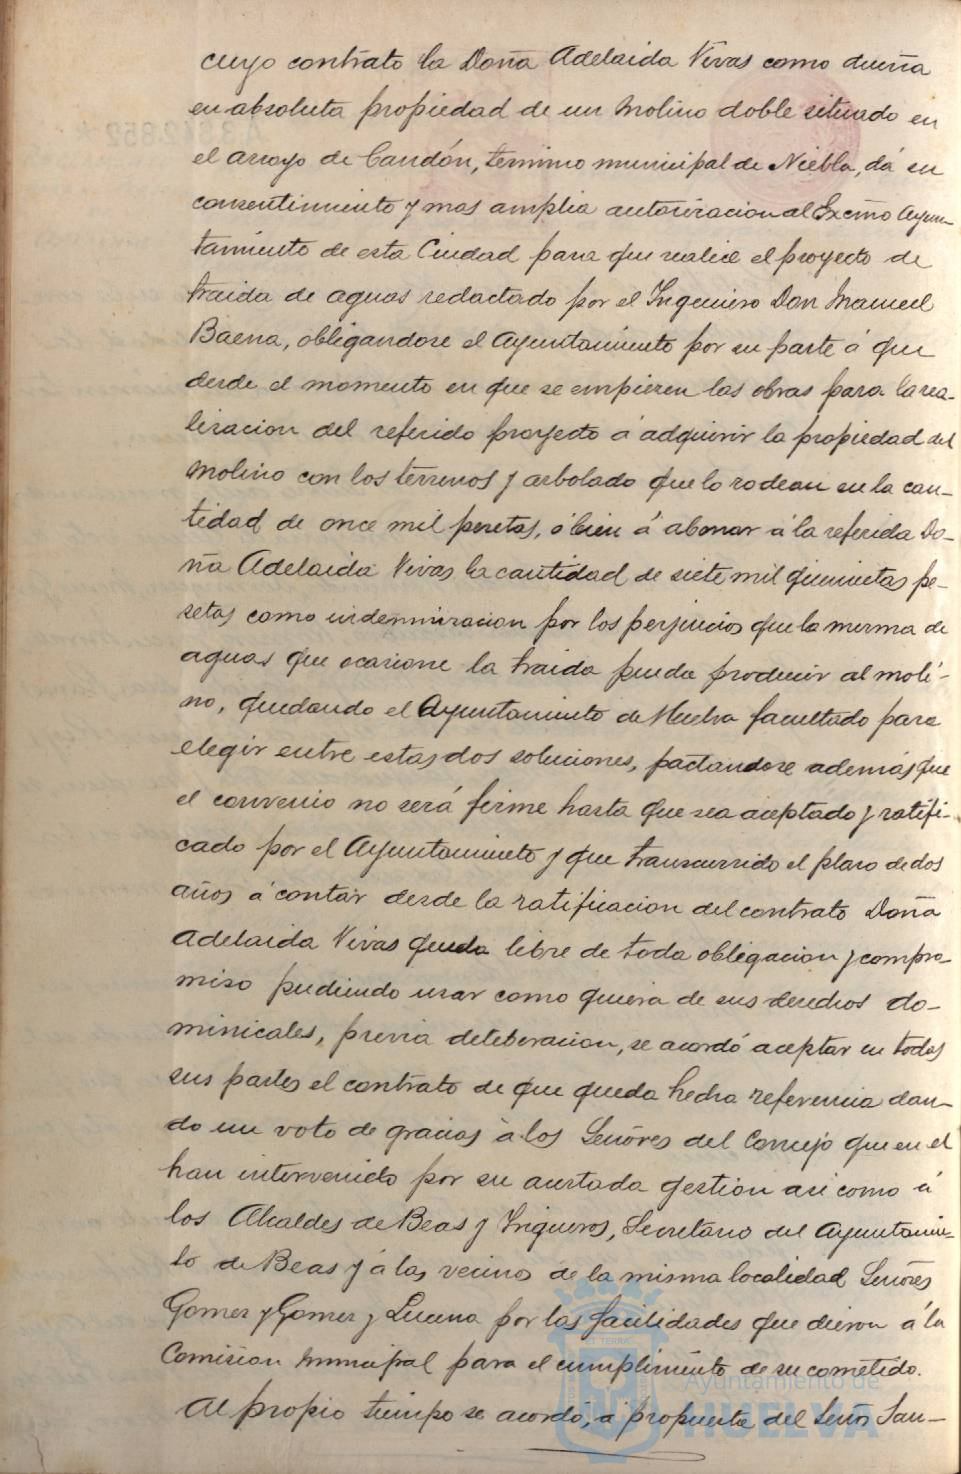 cuyo contrato la Doña Adelaida Vivas como dueña
en absoluta propiedad de un molino doble situado en
el arroyo de Candón, termino municipal de Niebla, dá su
consentimiento y mas amplia autorizacion al Excmo Ayun-
tamiento de esta Ciudad para que realice el proyecto de
traida de aguas redactado por el Ingeniero Don Manuel
Baena, obligandose el Ayuntamiento por su parte á que
desde el momento en que se empiezen las obras para la rea-
lizacion del referido proyecto á adquirir la propiedad del
molino con los terrenos y arbolado que lo rodean en la can-
tidad de once mil pesetas, ó bien á abonar á la referida Do-
ña Adelaida Vivas la cantidad de siete mil quinientas pe-
setas como indemnizacion por los perjuicios que la merma de
aguas que ocasione la traida pueda producir al moli-
no, quedando el Ayuntamiento de Huelva facultado para
elegir entre estas dos soluciones, pactandose además que
el convenio no será firme hasta que sea aceptado y ratifi-
cado por el Ayuntamiento y que transcurrido el plazo de dos
años á contar desde la ratificacion del contrato Doña
Adelaida Vivas queda libre de toda obligacion y compro-
miso pudiendo usar como quiera de sus derechos do-
minicales, previa deleberacion, se acordó aceptar en todas
sus partes el contrato de que queda hecha referencia dan-
do un voto de gracias á los Señores del Concejo que en el
han intervenido por su acertada gestion asi como á
los Alcaldes de Beas y Trigueros, Secretario del Ayuntamien-
to de Beas y á los vecinos de la misma localidad Señores
Gomez y Gomez y Lucena por las facilidades que dieron á la
Comision Municipal para el cumplimiento de su cometido.
Al propio tiempo se acordó, á propuesta del Señor San-
Ayuntamiento de
HUELVA